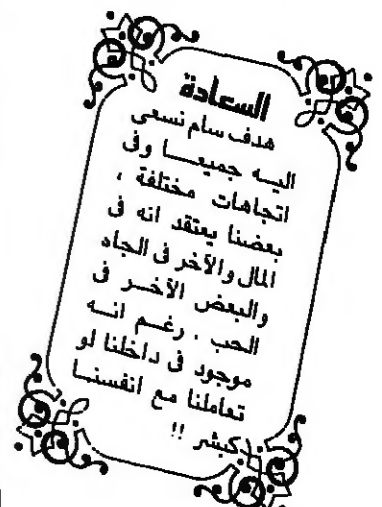 السعادة
هدف سام نسعى
اليه جميعا وفى
اتجاهات مختلفة ،
بعضنا يعتقد انه فى
المال والآخر فى الجاه
والبعض الآخر فى
الحب . رغم انه
موجود فى داخلنا لو
تعاملنا مع انفسنا
كبشر !!